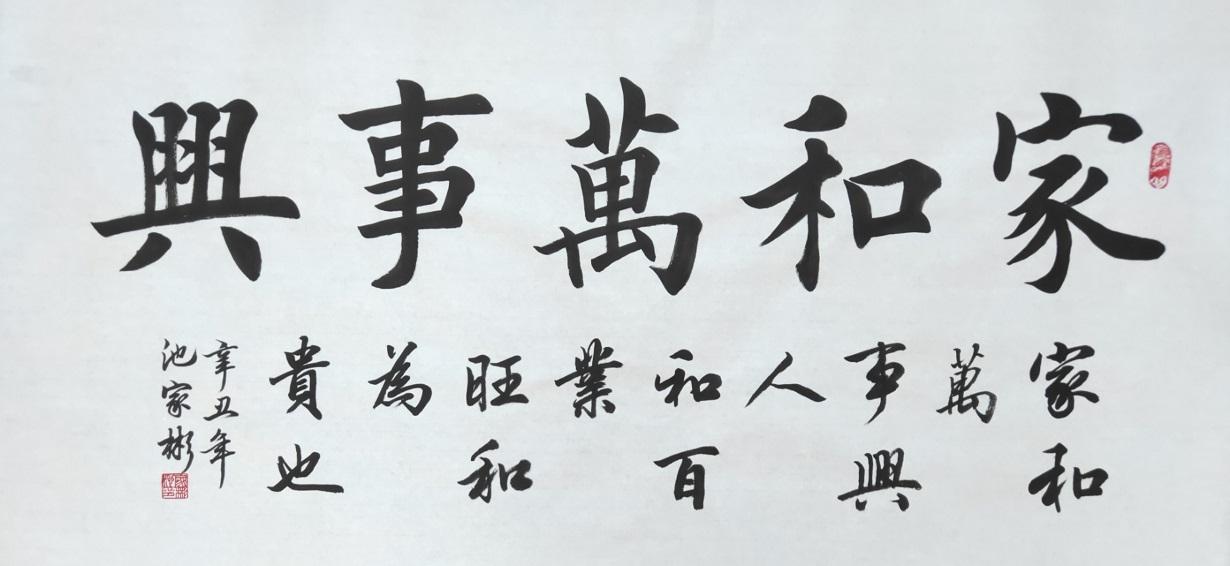 家和萬事興
家和
萬
事興
人
和百
業
旺和
為
貴也
辛丑年
池家彬